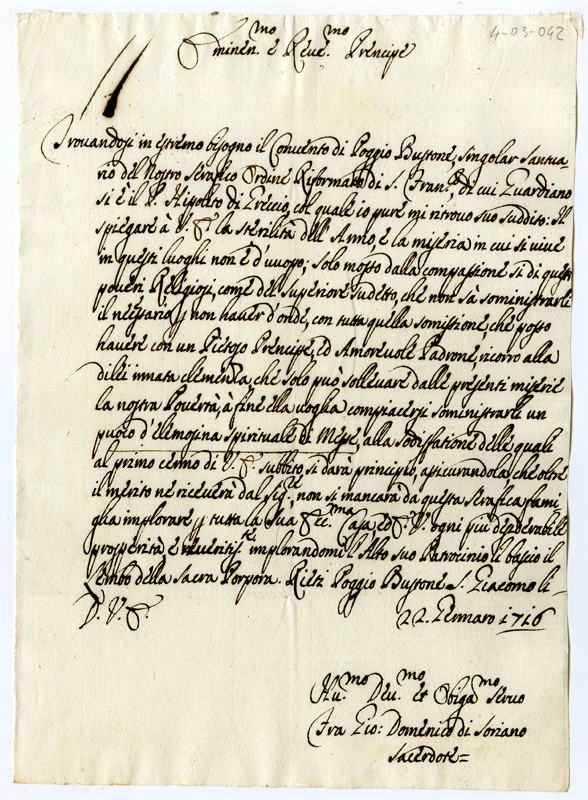 4-03-042
Eminen.mo e Reve.mo Prencipe
Trovandosi in estremo bisogno il Convento di Poggio Bustone, singolar santua-
rio del nostro Serafico Ordine Riformato di S. Fran.co, di cui Guardiano
si è il P. Hipolito di Greccio, col quale io pure mi ritrovo suo suddito: Il
spiegare à V. E. la sterilità dell'Anno, e la miseria in cui si vive
in questi luoghi non è d'uuopo; solo mosso dalla compassione sì di questi
poveri Religiosi, come del Superiore sudetto, che non sà somministrarli
il necessario p non haver d'onde, con tutta quella somissione, che posso
havere con un Pietoso Prencipe, ed Amorevole Padrone, ricorro alla
dilei innata clemenza, che solo può sollevare dalle presenti miserie
la nostra Povertà, à fine ella voglia compiacersi somministrarli un
puoco d'elemosina spirituale di Messe, alla sodisfatione delle quali
al primo cenno di V. E. subbito si darà principio, assicurandola che oltre
il merito ne riceverà dal Sig.re, non si mancarà da questa serafica fami
glia implorare p tutta la sua Ecc.ma Casa ed E. V. ogni più desiderabile
prosperità e implorandomi l'Alto suo Patrocinio li bascio il
lembo della Sacra Porpora. Rieti Poggio Bustone S. Giacomo li-
D. V. E. 22. Gennaro 1716
Hu.mo Dev.mo et Obiga.mo Servo
Fra Gio: Domenico di Soriano
Sacerdote=